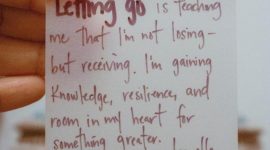 Letting go is teaching
me that I'm not losing–
but receiving. I'm gaining
knowledge, resilience, and
room in my heart for
something greater.